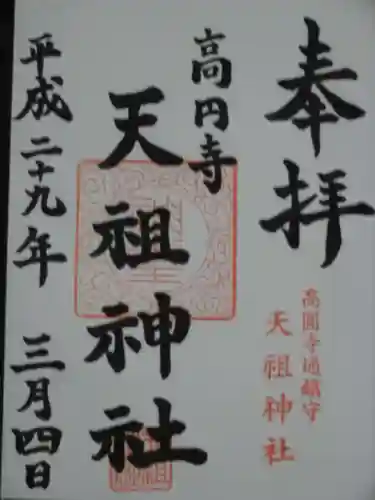 奉拝
高圓寺通鎮守
天祖神社
高円寺
天祖神社
平成二十九年 三月四日